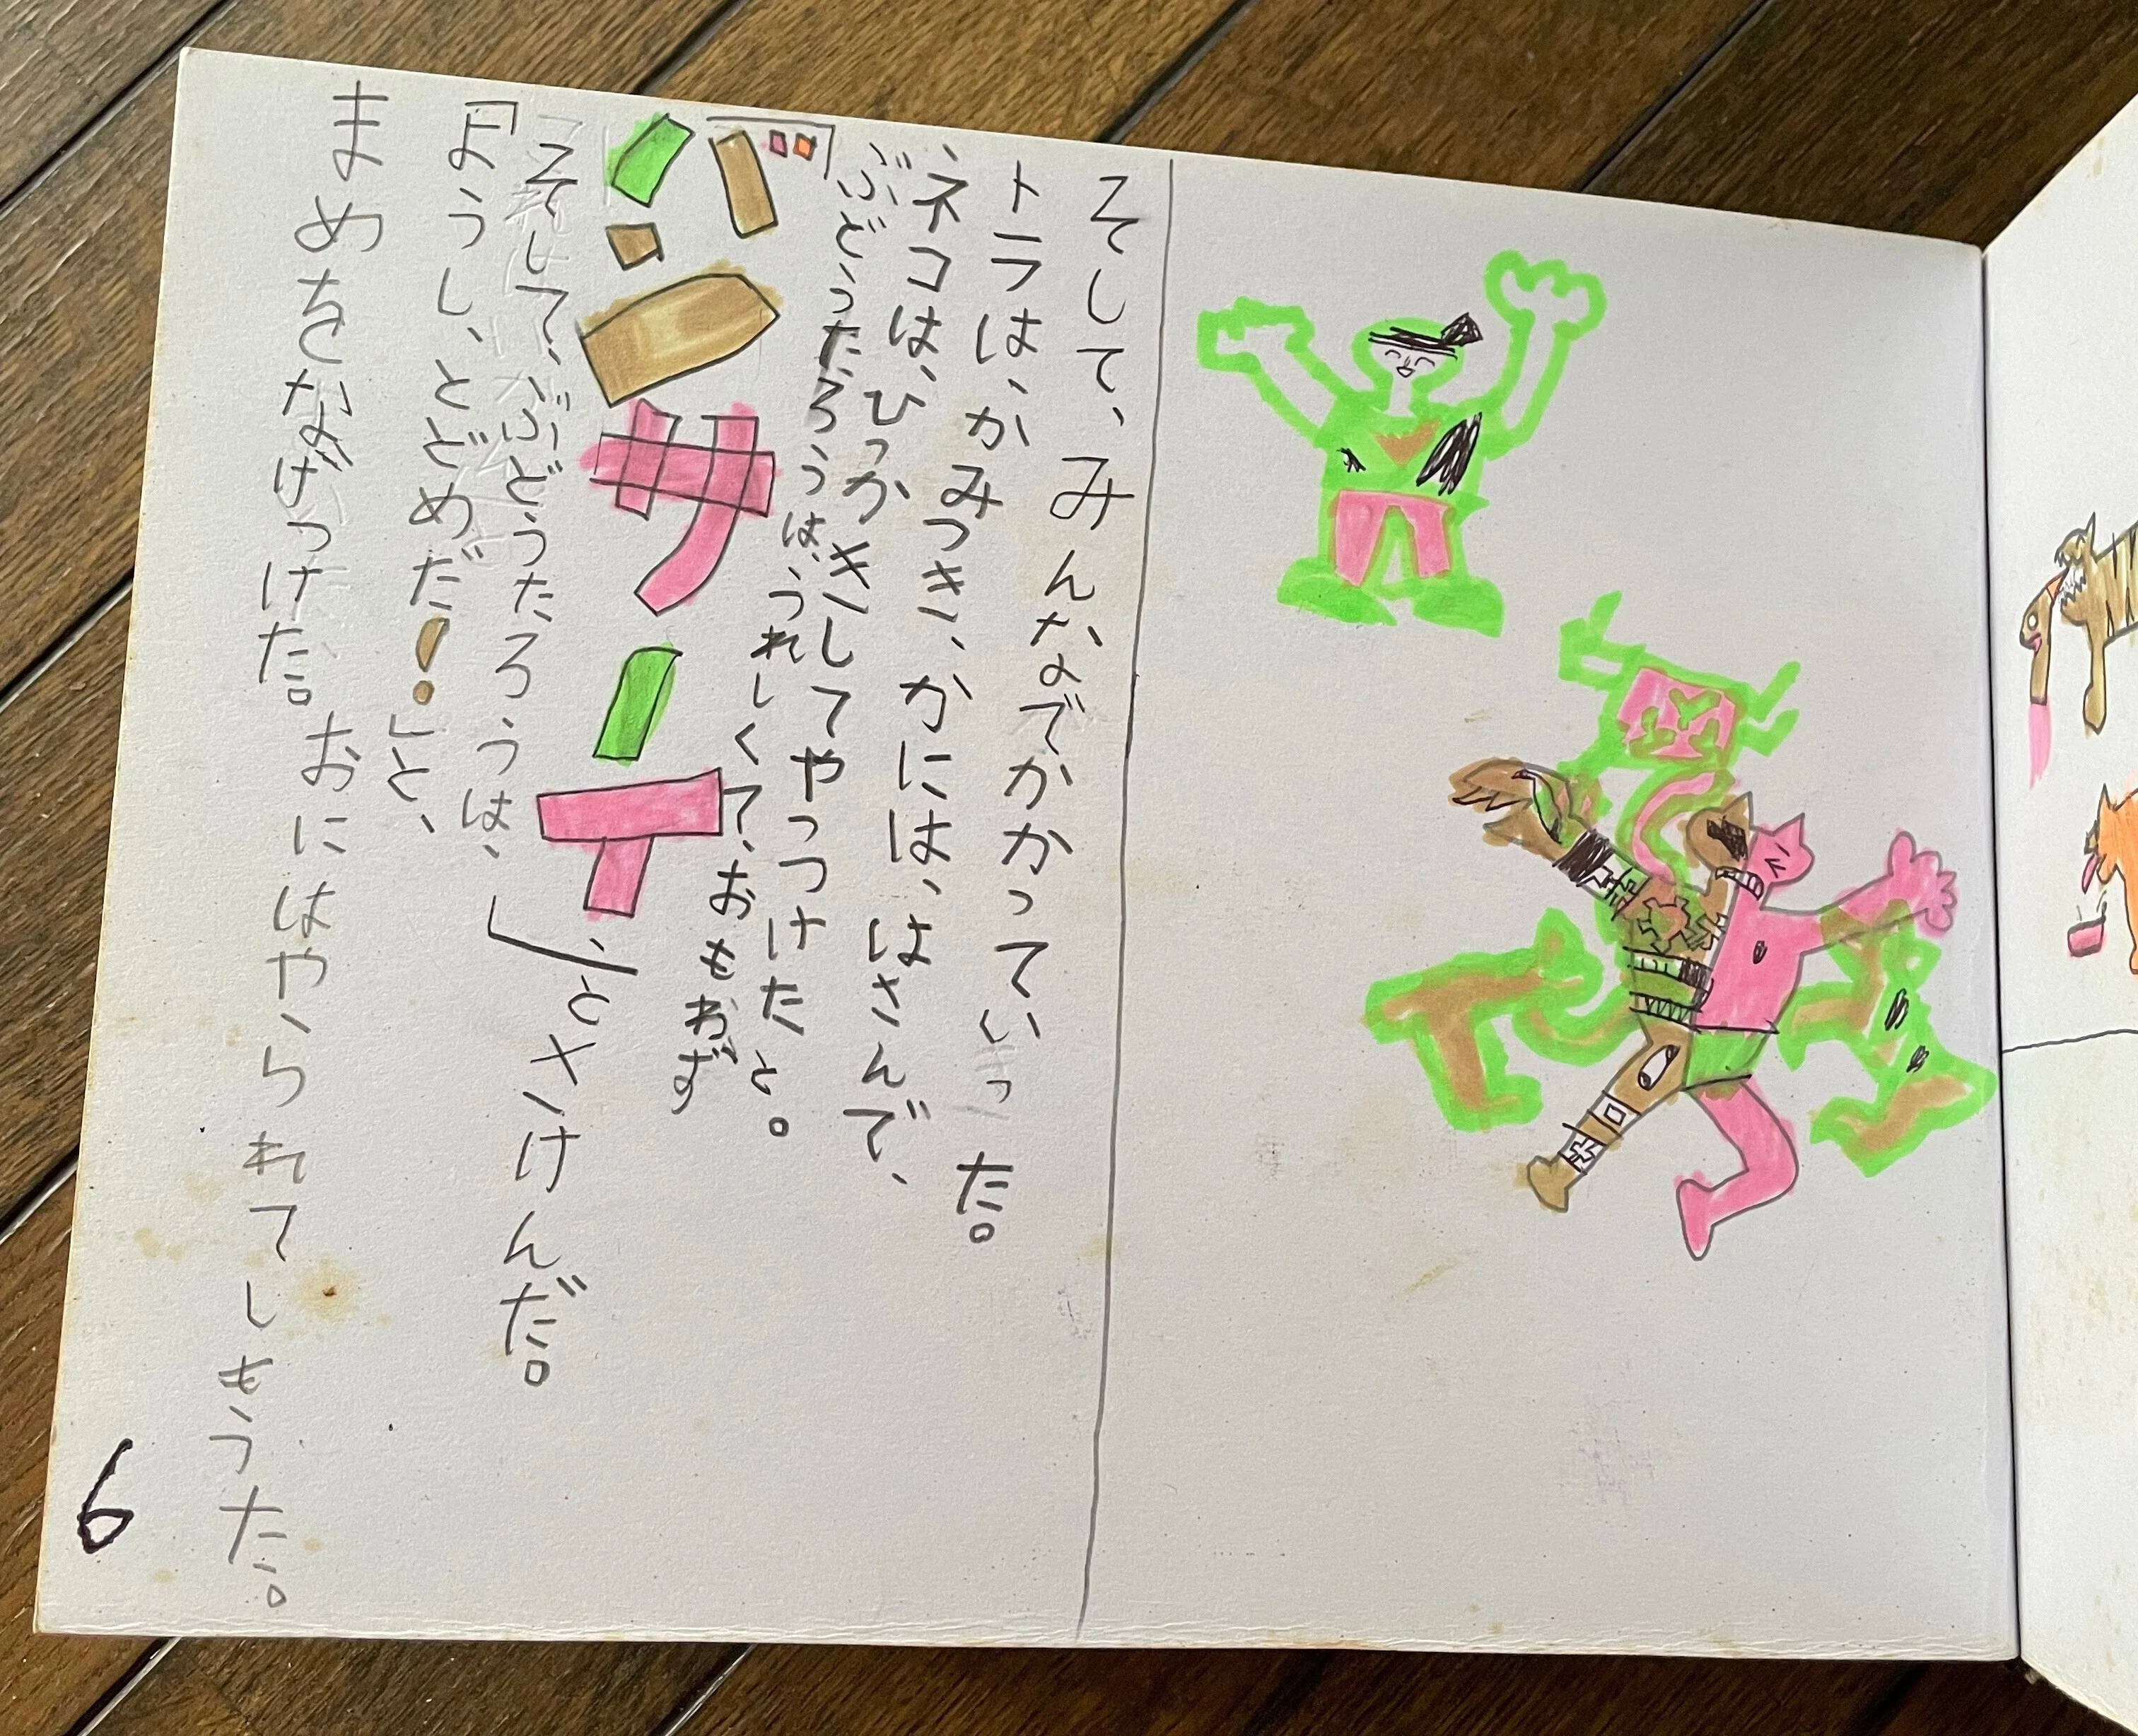 そして、みんなでかかっていった。
トラは、かみつき、かには、はさんで、
ネコは、ひっかきしてやっつけたと。
ぶどうたろうは、うれしくて、おもわず
「バンサーイ」、とさけんだ。
そして、ぶどうたろうは、
「ようし、とどめだ!」と、
まめをなげつけた。おにはやられてしもうた。
6